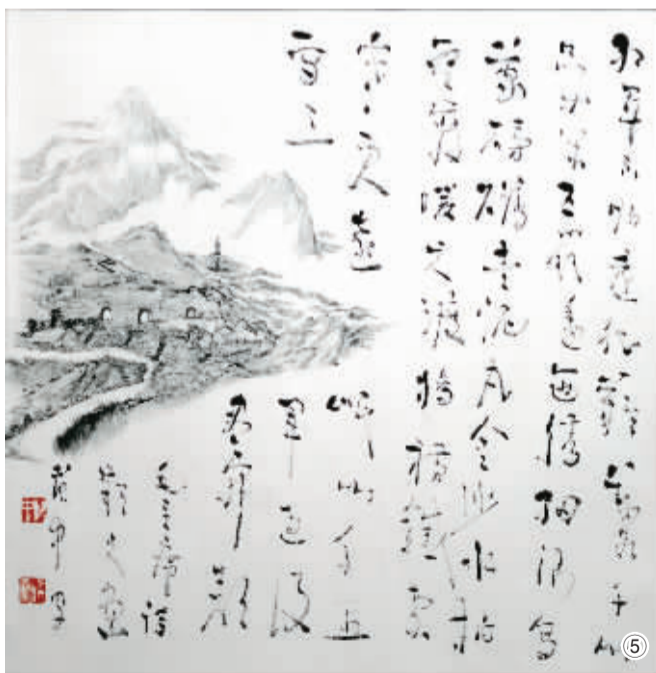 红军不怕远征難萬水千山
只等闲五岭逶迤腾细浪乌
蒙磅礴走泥丸金沙水拍
雲崖暖大渡桥横鐵索
寒更喜岷山千里
雪三军过后
尽开颜
毛主席诗
⑤